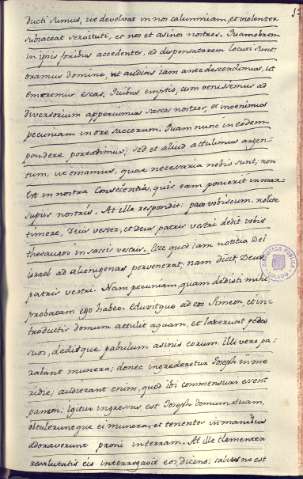 ducti sumus, ut devolvat in nos calumniam, et violenter
subiiciat servituti, et nos et asinos nostros. Quamobrem
in ipsis foribus accedentes, ad dispensatorem locuti sunt:
oramus domine, ut audias iam ante descendimus, ut
emeremus escas. Quibus emptis, cum venissemus ad
diversorium aperuimus saccos nostros, et invenimus
pecuniam in ore saccorum. Quam nunc in eodem
pondere portavimus; sed et aliud attulimus argen-
tum, ut emamus, quae necessaria nobis sunt, non
est in nostra Conscientia, quis eam posuerit in mar
supiis nostris. At ille respondit: pax vobiscum, nolite
timere, Deus vester, et Deus patris vestri dedit vobis
thesauros in saccis vestris. Ecce quod iam notitia Dei
Iacob ad alienigenas pervenerat, nam dicit, Deus
patris vestri. Nam pecuniam, quam dedistis mihi
probatam ego habeo. Eduxitque ad eos Simeon, et in-
troductis domum attulit aquam, et laverunt pedes
suos, deditque pabulum asinis eorum. Illi vero pa-
rabant munera, donec ingrederetur Ioseph in me
ridie, audierant enim, quod ibi commessuri erent
panem. Igitur ingressus est Ioseph domum suam,
obtuleruntque ei munera, et tenentes in manibus
adoraverunt proni in terram. At ille clementer
resalutatis eis interrogavit eos dicens: salvus ne est